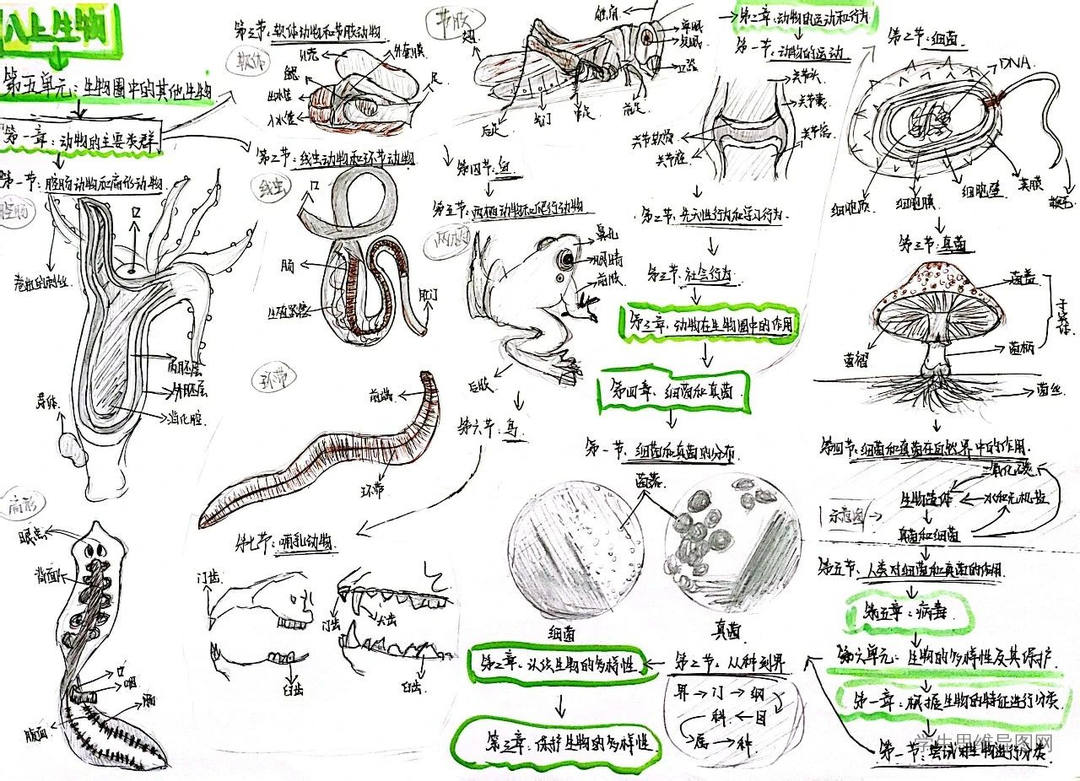 八上生物
第五单元：生物圈中的其他生物
第一章：动物的主要类群
第一节：腔肠动物和扁形动物
腔肠
口
内胚层
外胚层
消化腔
芽体
扁形
眼点
背面
口
咽
腹面
第三节：软体动物和节肢动物
软体
外套膜
鳃
足
出水管
入水管
第二节：线生动物和环节动物
线生
口
肠
肛门
环带
前端
环带
第七节：哺乳动物
门齿
臼齿
门齿
犬齿
臼齿
节肢
翅
触角
单眼
复眼
口器
后足
气门
中足
前足
第四节：鱼
第五节：两栖动物和爬行动物
两栖
鼻孔
眼睛
前肢
后肢
第六节：鸟
第二章：动物的运动和行为
第一节：动物的运动
关节头
关节囊
关节软骨
关节窝
关节腔
第二节：先天性行为和学习行为
第三节：社会行为
第三章：动物在生物圈中的作用
第四章：细菌和真菌
第一节：细菌和真菌的分布
菌落
细菌
真菌
第二节：细菌
DNA
细胞质
细胞膜
细胞壁
荚膜
鞭毛
第三节：真菌
菌盖
子实体
菌褶
菌柄
菌丝
第四节：细菌和真菌在自然界中的作用
二氧化碳
生物遗体
水和无机盐
示意图
真菌和细菌
第五节：人类对细菌和真菌的作用
第五章：病毒
第六单元：生物的多样性及其保护
第一章：根据生物的特征进行分类
第一节：尝试对生物进行分类
第二节：从种到界
界→门→纲
科←目
属→种
第二章：认识生物的多样性
第三章：保护生物的多样性
学生思维导图网